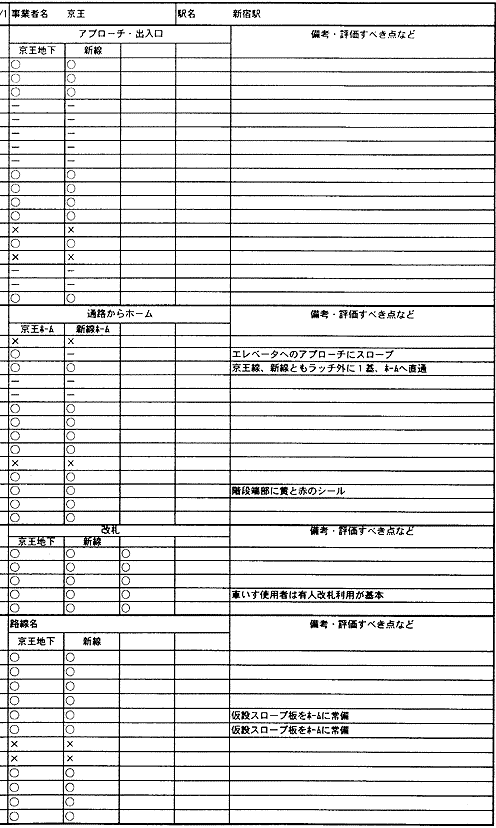 /1 事業者名 京王 駅名 新宿駅
アプローチ・出入口 備考・評価すべき点など
京王地下 新線
○ ○
○ ○
○ ○
－ －
－ －
－ －
－ －
－ －
○ ○
○ ○
○ ○
○ ○
× ×
○ ○
× ×
－ －
－ －
○ ○
通路からホーム 備考・評価すべき点など
京王ﾎｰﾑ 新線ﾎｰﾑ
× ×
○ － エレベータへのアプローチにスロープ
○ ○ 京王線、新線ともラッチ外に１基、ﾎｰﾑへ直通
－ －
－ －
○ ○
○ ○
○ ○
○ ○
× ×
○ ○
○ ○ 階段端部に黄と赤のシール
○ ○
○ ○
改札 備考・評価すべき点など
京王地下 新線
○ ○ ○
○ ○ ○
○ ○ ○
○ ○ ○ 車いす使用者は有人改札利用が基本
○ ○ ○
路線名 備考・評価すべき点など
京王地下 新線
○ ○
○ ○
○ ○
○ ○
○ ○ 仮設スロープ板をﾎｰﾑに常備
○ ○ 仮設スロープ板をﾎｰﾑに常備
× ×
× ×
○ ○
○ ○
○ ○
○ ○